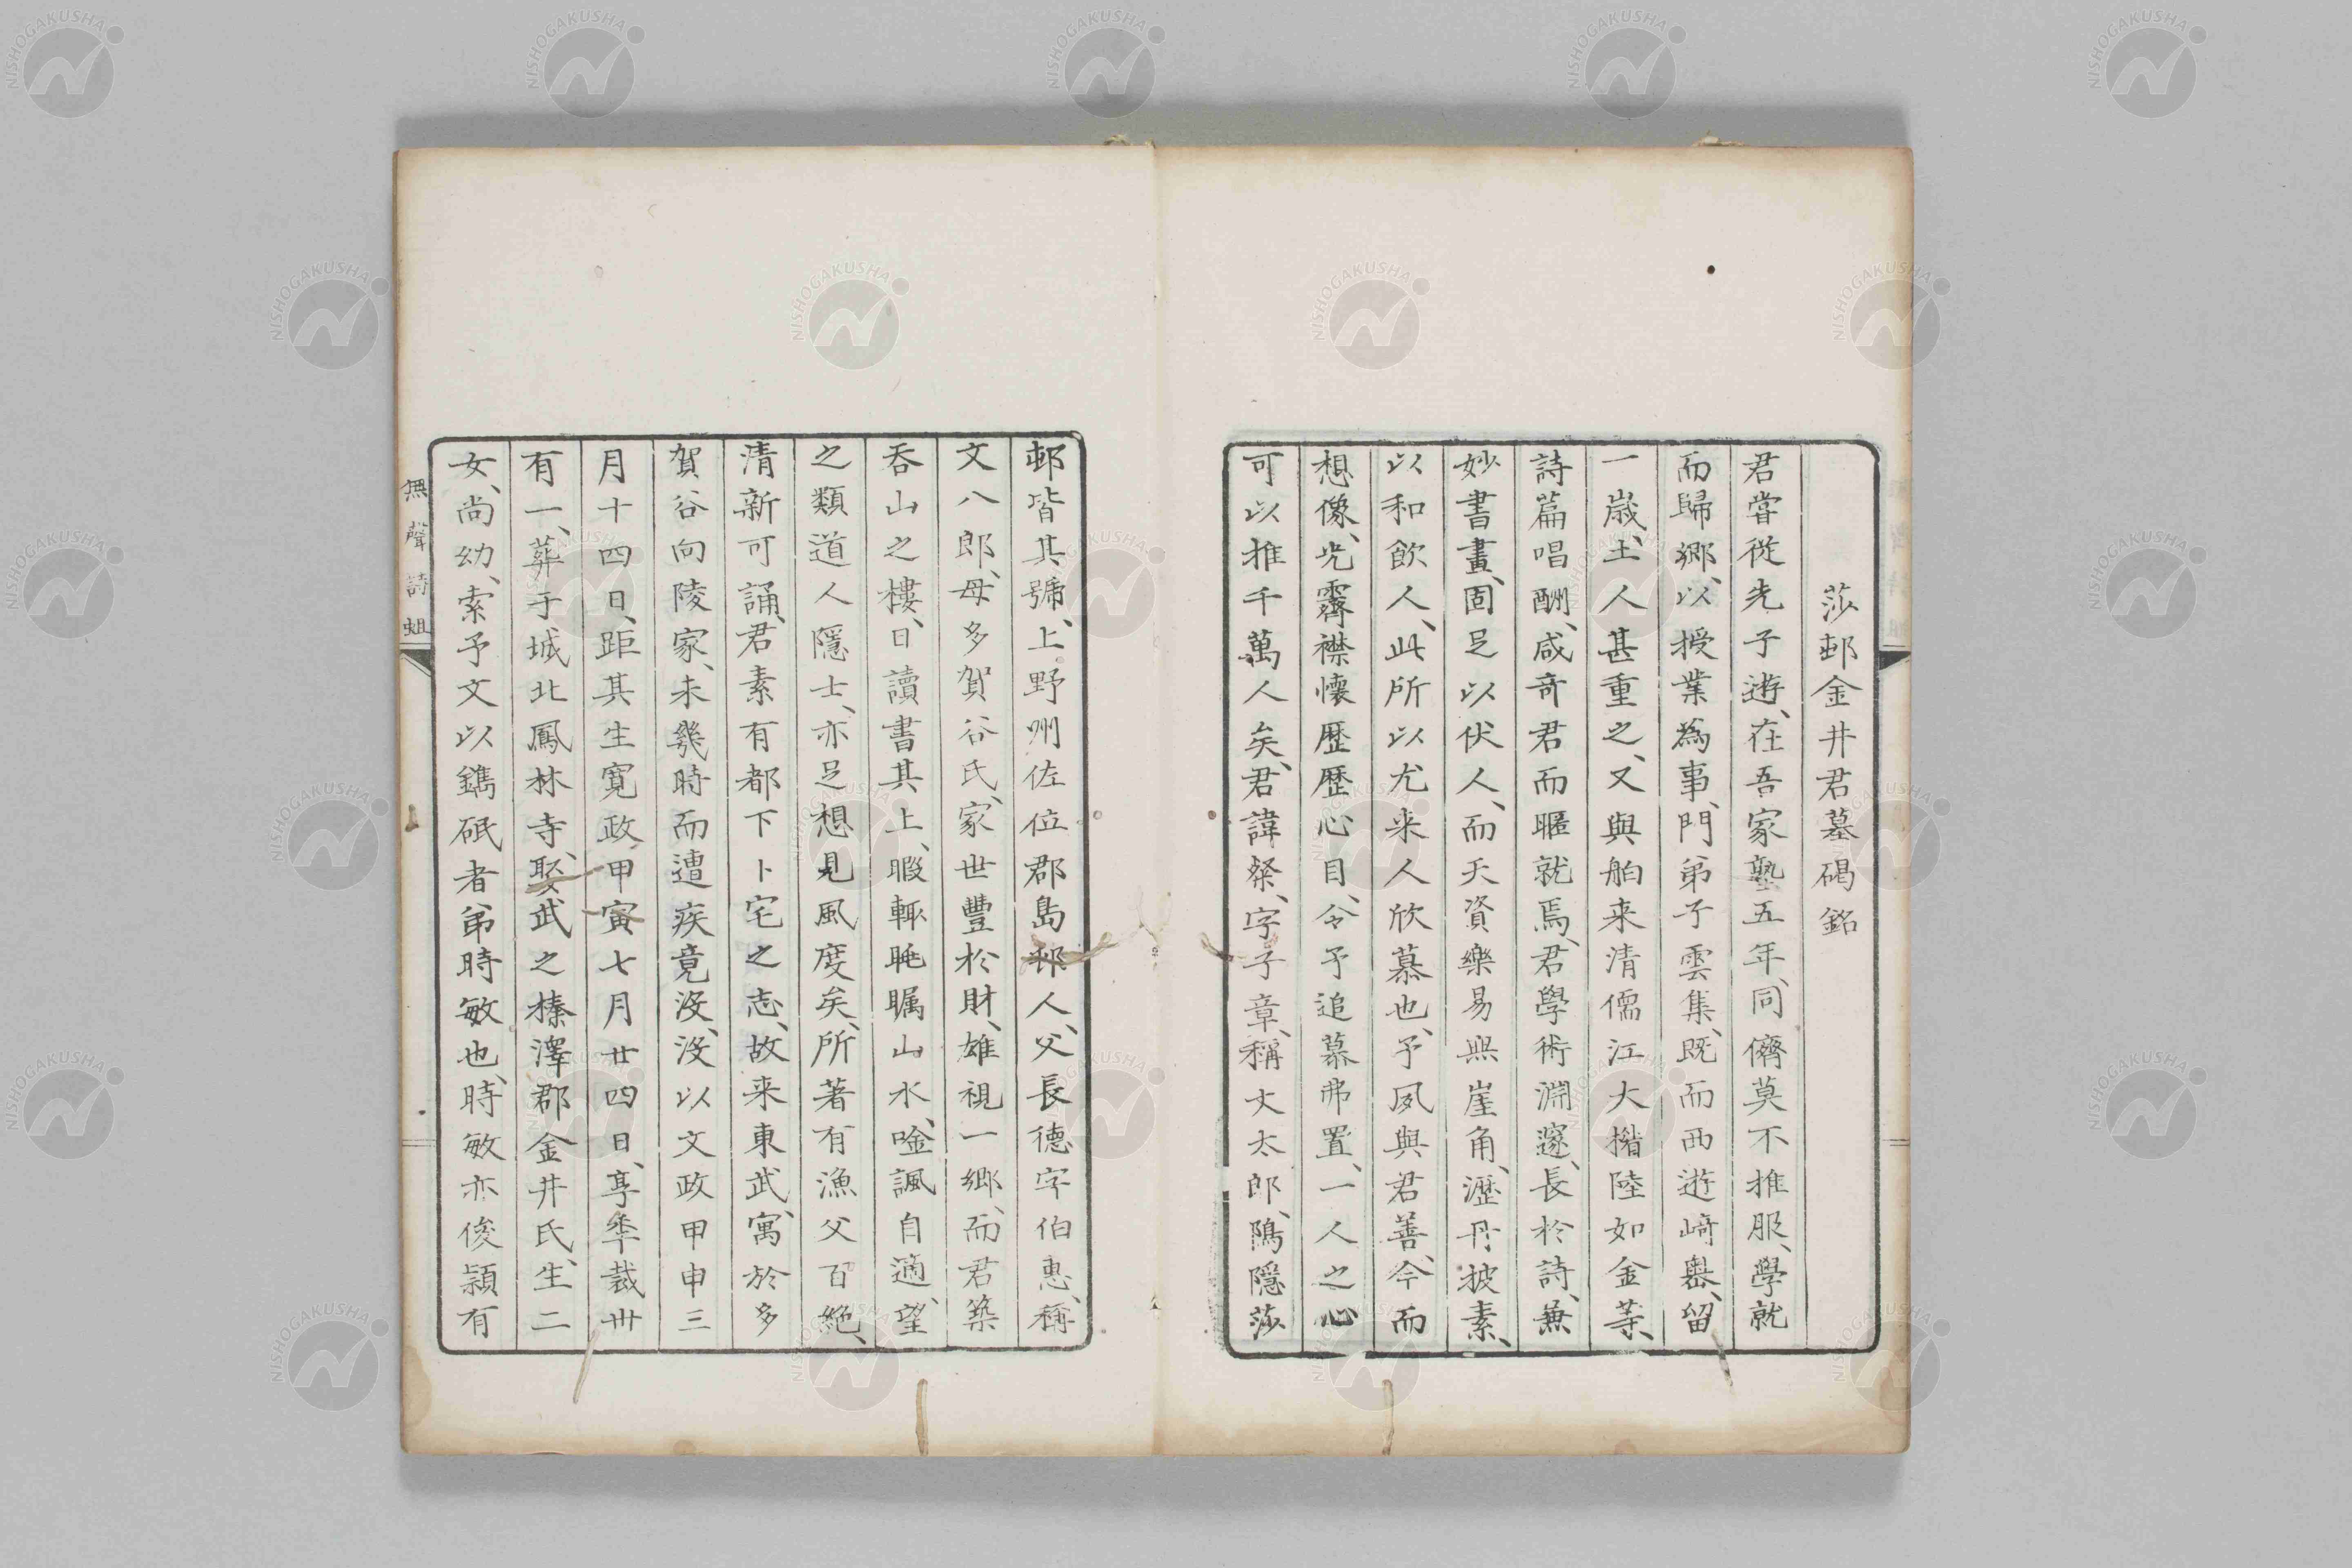 莎邨金井君墓碣銘
君嘗從先子遊、在吾家塾五年、同儕莫不推服、學就
而歸鄉、以授業為事、門弟子雲集、既而西遊﨑嶴、留
一歲、土人甚重之、又與舶来清儒江大楷陸如金等、
詩篇唱酬、咸奇君而暱就焉、君學術淵邃、長於詩、兼
妙書畫、固足以伏人、而天資樂易無崖角、瀝丹披素、
以和飲人、此所以尤来人欣慕也、予夙與君善、今而
想像、光霽襟懷歷歷心目、令予追慕弗置、一人之心
可以推千萬人矣、君諱粲、字子章、稱文太郎、隝隱莎
邨皆其號、上野州佐位郡島邨人、父長德字伯惠、稱
文八郎、母多賀谷氏、家世豐於財、雄視一鄉、而君築
呑山之樓、日讀書其上、暇輒眺矚山水、唫諷自適、望
之類道人隱士、亦足想見風度矣、所著有漁父百絶、
清新可誦、君素有都下卜宅之志、故来東武、寓於多
賀谷向陵家、未幾時而遭疾竟沒、沒以文政甲申三
月十四日、距其生寬政甲寅七月廿四日、享年裁卅
有一、葬于城北鳳林寺、娶武之榛澤郡金井氏、生二
女、尚幼、索予文以鐫砥者弟時敏也、時敏亦俊穎有
無聲詩蛆